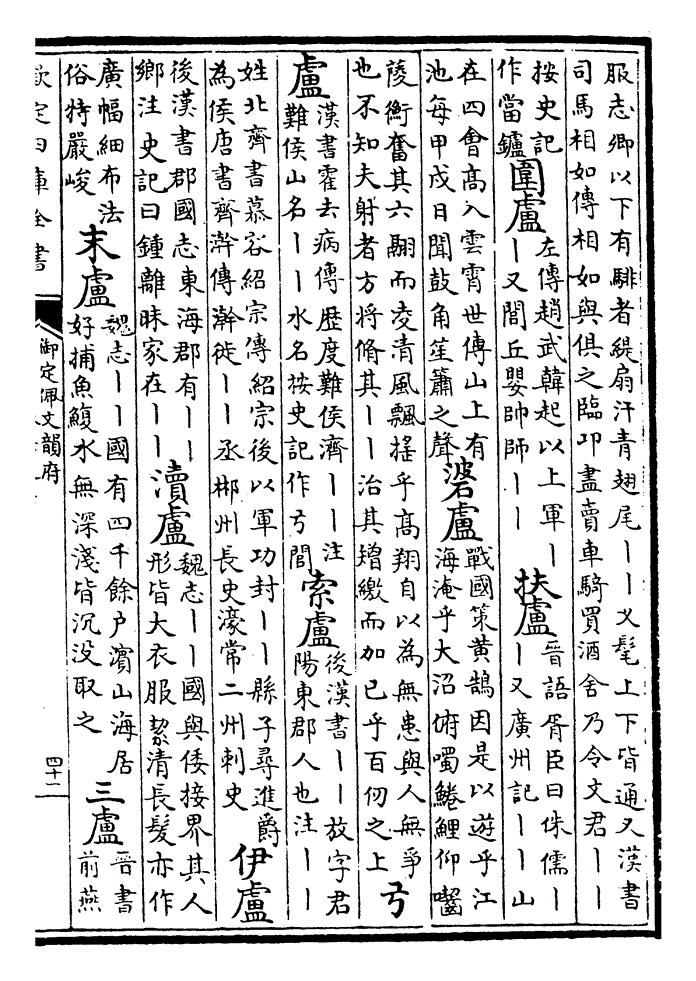 服志卿以下有騑者緹扇汗青翅尾丨丨又髦上下皆通又漢書
司馬相如傳相如與俱之臨卭盡賣車騎買酒舍乃令文君丨丨
按史記
作當鑪
圍盧
左傳趙武韓起以上軍丨
丨又閭丘嬰帥師丨丨
扶盧
晉語胥臣曰侏儒丨
丨又廣州記丨丨山
在四會髙入雲霄世傳山上有
池每甲戌日聞鼓角笙簫之聲
碆盧
戰國策黄鵠因是以遊乎江
海淹乎大沼俯噣鯉仰
陵衡奮其六翮而凌清風飄搖乎髙翔自以為無患與人無爭
也不知夫射者方將脩其丨丨治其矰繳而加已乎百仞之上
弓
盧
漢書霍去病傳歴度難侯濟丨丨注
難侯山名丨丨水名按史記作弓閭
索盧
後漢書丨丨放字君
陽東郡人也注丨丨
姓北齊書慕容紹宗傳紹宗後以軍功封丨丨縣子尋進爵
為侯唐書齊澣傳澣徙丨丨丞郴州長史濠常二州刺史
伊盧
後漢書郡國志東海郡有丨丨
鄉注史記曰鍾離眛家在丨丨
瀆盧
魏志丨丨國與倭接界其人
形皆大衣服絜清長髮亦作
廣幅細布法
俗特嚴峻
末盧
魏志丨丨國有四千餘户濱山海居
好捕魚鰒水無深淺皆沉没取之
三盧
晉書
前燕
欽定四庫全書
御定佩文韻府
四十二